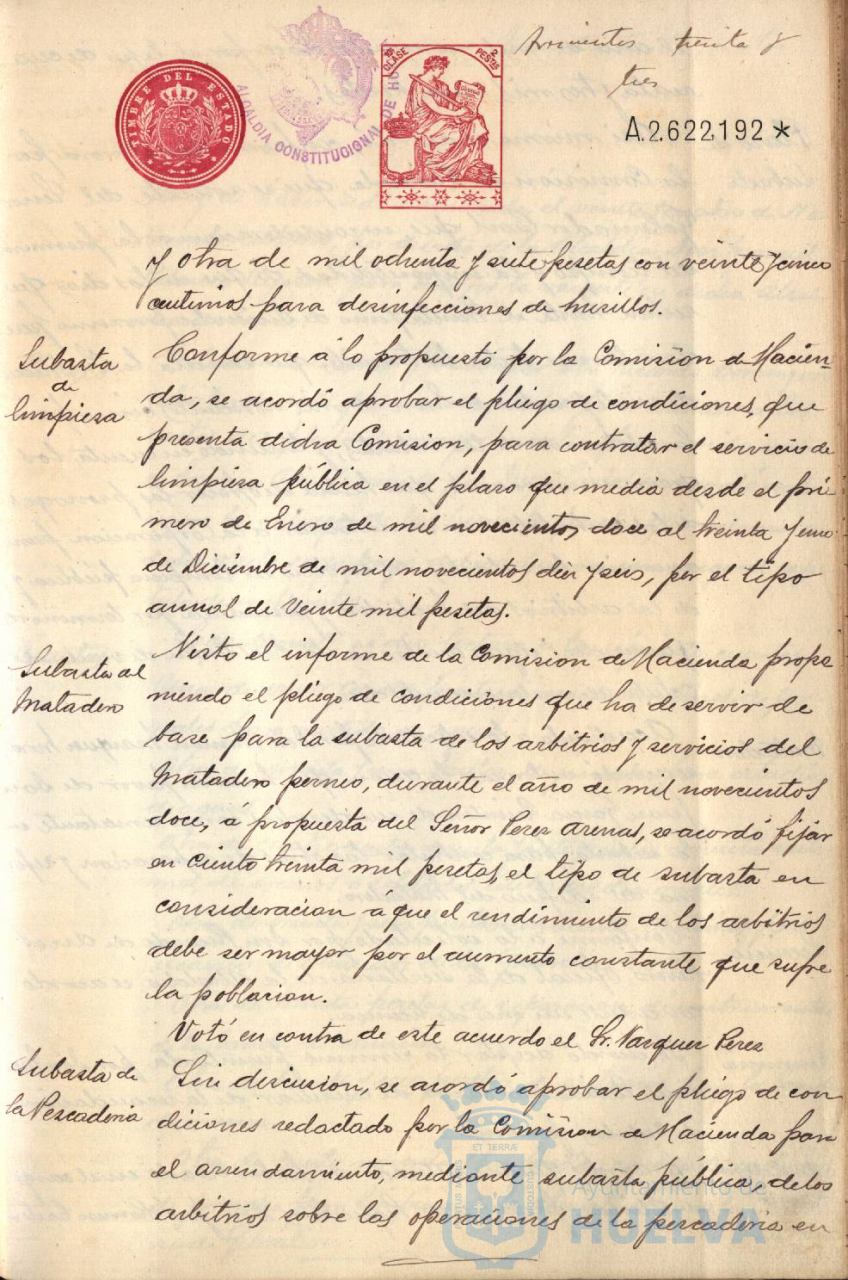 TIMBRE DEL ESTADO
ALCALDIA CONSTITUCIONAL DE HU
CLASE
2 PESTAS
treinta y
tres
A.2.622.192*
y otra de mil ochenta y siete pesetas con veinte y cinco
centimos para desinfecciones de husillos.
Subasta
de
limpiesa
Conforme á lo propuesto por la Comision de Hacien-
da, se acordó aprobar el pliego de condiciones, que
presenta dicha Comision, para contratar el servicio de
limpiesa pública en el plaso que media desde el pri-
mero de Enero de mil novecientos doce al treinta y uno
de Diciembre de mil novecientos diez y seis, por el tipo
anual de Veinte mil pesetas.
Subasta del
Matadero
Visto el informe de la Comision de Hacienda propo
niendo el pliego de condiciones que ha de servir de
base para la subasta de los arbitrios y servicios del
Matadero, durante el año de mil novecientos
doce, á propuesta del Señor Perez Arenas, se acordó fijar
en ciento treinta mil pesetas, el tipo de subasta en
consideracion á que el rendimiento de los arbitrios
debe ser mayor por el aumento constante que sufre
la poblacion.
Votó en contra de este acuerdo el Sr. Vazquez Perez
Subasta de
la Pescaderia
Sin discusion, se acordó aprobar el pliego de con
diciones redactado por la Comision de Hacienda para
el arrendamiento, mediante subasta pública, de los
arbitrios sobre las operaciones de la pescaderia en
Ayuntamiento de
HUELVA